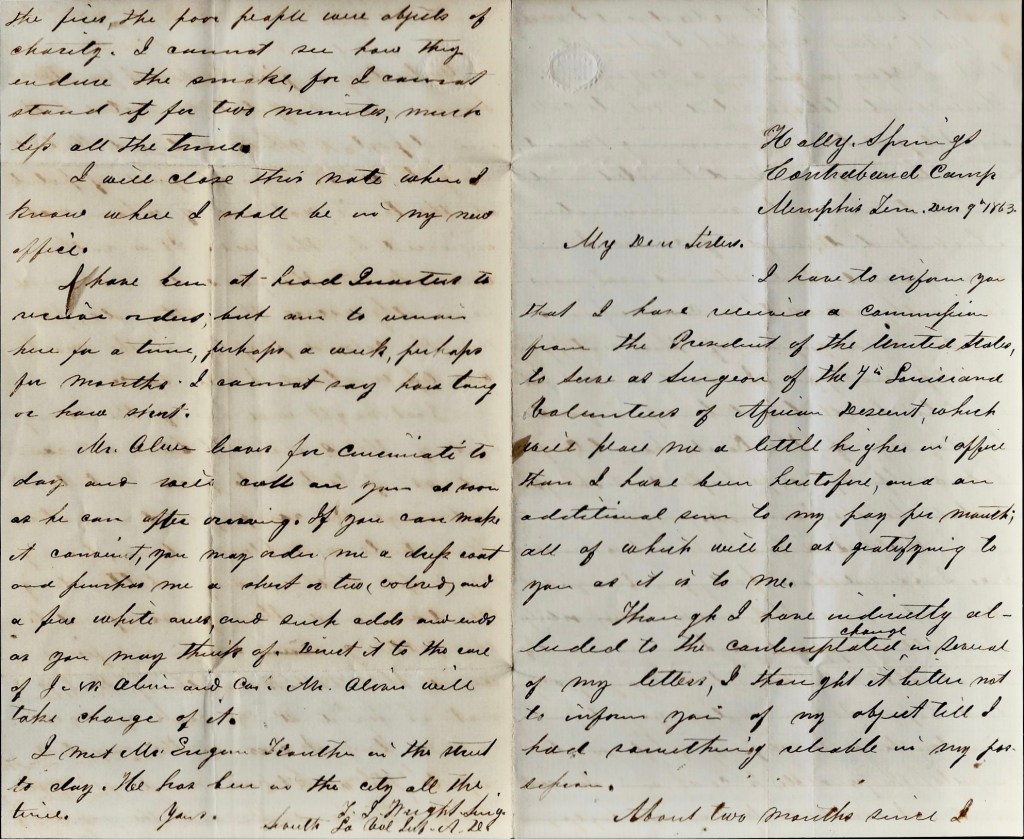 Holly Springs
Contraband Camp
Memphis Tenn. Decr 9th 1863.
My Dear Sisters.
I have to inform you
that I have received a commission
from the President of the United States,
to serve as Surgeon of the 7th Louisiana
Volunteers of African Descent, which
will place me a little higher in office
than I have been heretofore, and an
additional sum to my pay per month;
all of which will be as gratifying to
you as it is to me.
Though I have indirectly al-
luded to the contemplated change, in several
of my letters, I thought it better not
to inform you of my object till I
had something reliable in my pos-
session.
About two months since I
the fires, the poor people were objects of
charity. I cannot see how they
endure the smoke, for I cannot
stand it for two minutes, much
less all the time.
I will close this note when I
know where I shall be in my new
office.
I have been at Head Quarters to
receive orders, but am to remain
here for a time, perhaps a week, perhaps
for months. I cannot say how long
or how short.
Mr. leaves for Cincinnati to
day and will call on you as soon
as he can after arriving. If you can make
it convient, you may order me a dress coat
and purchas me a shirt or two, (colored) and
a few white ones, and such odds and ends
as you may think of. Direct it to the care
of and Mr. will
take charge of it.
I met Mr. in the street
to day. He has been in the city all the
time. Yours. Wright Surg.
La Vol Inf. A. De